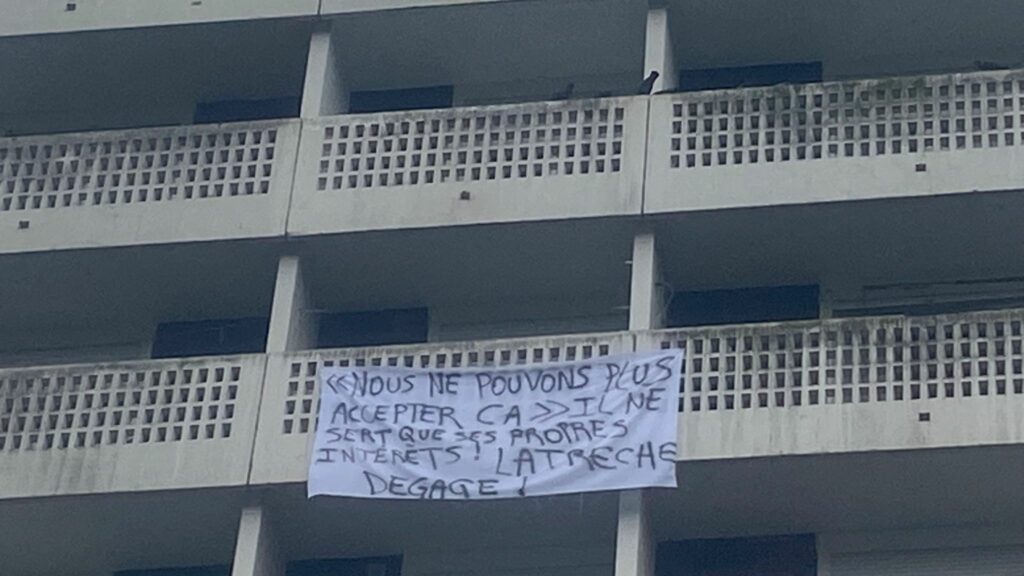 «NOUS NE POUVONS PLUS
ACCEPTER CA» IL NE
SERT QUE SES PROPRES
INTERETS ! LATRECHE
DEGAGE !